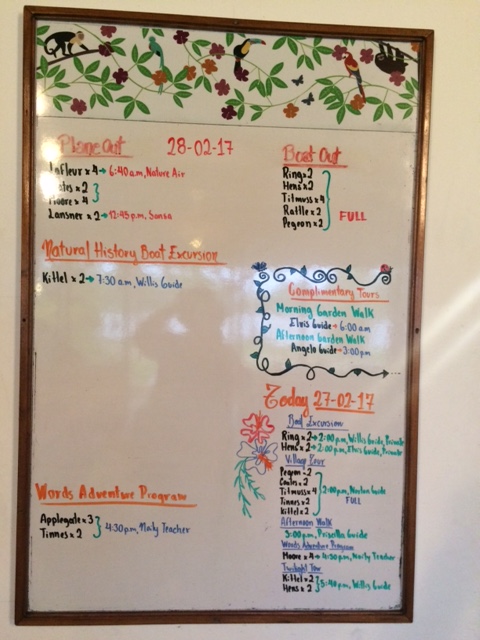 Plane Out 28-02-17
LaFleur x 4 → 6:40 a.m, Nature Air
x 2
Moore x 4
Lansner x 2 → 12:45 p.m, Sansa
Boat Out
Ring x 2
Hens x 2
Titmuss x 4
Rattle x 2
Pegeon x 2
FULL
Natural History Boat Excursion
Kittel x 2 → 7:30 am, Willis Guide
Complimentary Tours
Morning Garden Walk
Elvis Guide → 6:00 am
Afternoon Garden Walk
Angelo Guide → 3:00 pm
Today 27-02-17
Boat Excursion
Ring x 2 → 2:00 pm, Willis Guide, Private
Hens x 2 → 2:00 pm, Elvis Guide, Private
Village Tour
Pegeon - 2
x 2
Titmuss x 4 2:00 pm, Guide
Tinnes x 2 FULL
Kittel x 2
Afternoon Walk
3:00 pm, Priscilla Guide
Words Adventure Program
Moore x 4 → 4:30 pm, Teacher
Twilight Tour
Kittel x 2 5:40 pm, Willis Guide
Hens x 2
Words Adventure Program
Applegate x 3
Tinnes x 2 4:30 pm, Naty Teacher